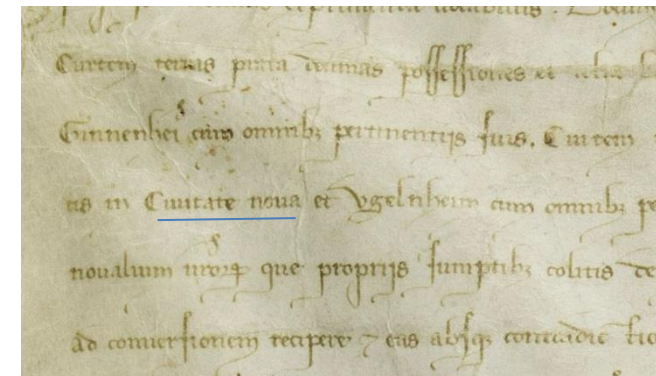 Curtem terras prata decimas possessiones et
Ginnenhei cum omnibꝫ pertinentijs suis. Curtem
tis in Ciuitate noua et Vgelnheim cum omnibꝫ
noualium uroꝝ que proprijs sumptibꝫ colitis de
ad conuersionem recipere ⁊ eas absqꝫ